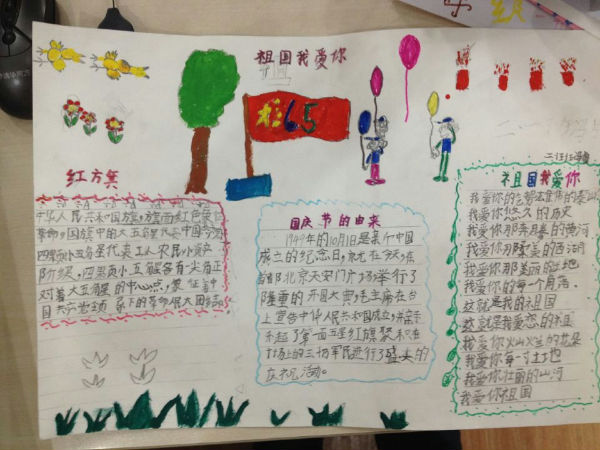 祖国我爱你
祖65
红方集
中华人民共和国旗旗面红色象征
革命,国旗中的大五角星代表中国
四颗小五角星代表工人农民小资产
阶级,四颗小五角星各有一尖角正
对着大五角星的中心点,象征着中
国共产党领导下的革命人民大团结
国庆节的由来
1949年的10月1日是新中国
成立的纪念日,就在今天,在
首都北京天安门广场举行了
隆重的开国大典,毛主席在台
上宣告中华人民共和国成立,并亲手
升起了第一面五星红旗聚积在
广场上的三十万军民进行了盛大的
庆祝活动。
祖国我爱你
我爱你悠久的历史
我爱你那奔腾的黄河
我爱你那美的西湖
我爱你那美丽的
我爱你的每一个角落。
这就是我的祖国
这就是我爱恋的祖
我爱你
我爱你每一寸土地
我爱你壮丽的山河
我爱你祖国